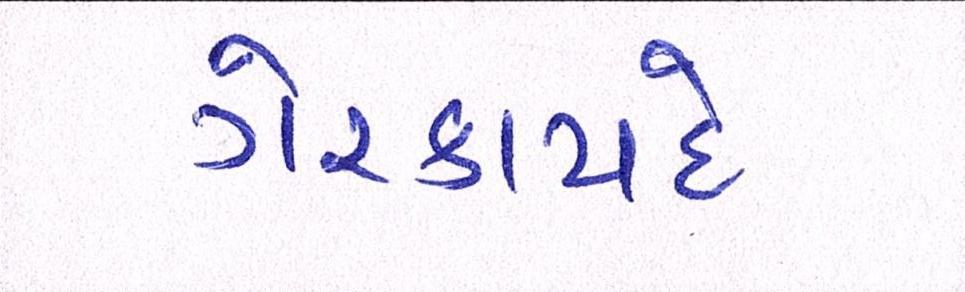 ગેરકાયદે